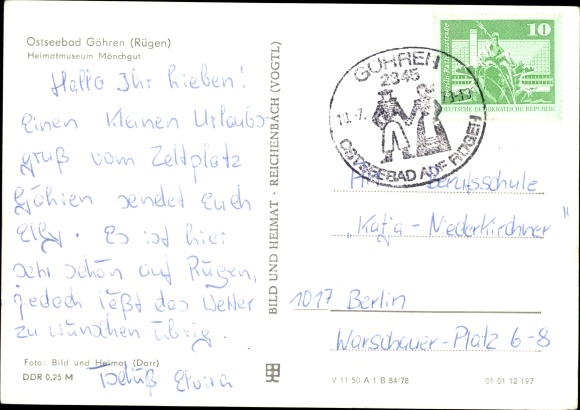 Ostseebad Göhren (Rügen)
Heimatmuseum Mönchgut
Hallo Ihr Lieben!
Einen kleinen Urlaubs
gruß vom Zeltplatz
Göhren sendet Euch
Elvy. Es ist hier
sehr schön auf Rügen,
jedoch läßt das Wetter
zu wünschen übrig.
Tschüß Elvira
Foto: Bild und Heimat (Darr)
DDR 0,25 M
BILD UND HEIMAT · REICHENBACH (VOGTL)
10
DEUTSCHE DEMOKRATISCHE REPUBLIK
GÖHREN
2345
11.-7.
OSTSEEBAD AUF RÜGEN
Berufsschule
"Katja - Niederkirchner"
1017 Berlin
Warschauer-Platz 6-8
V 11 50 A 1 B 84/78
01 01 12 197